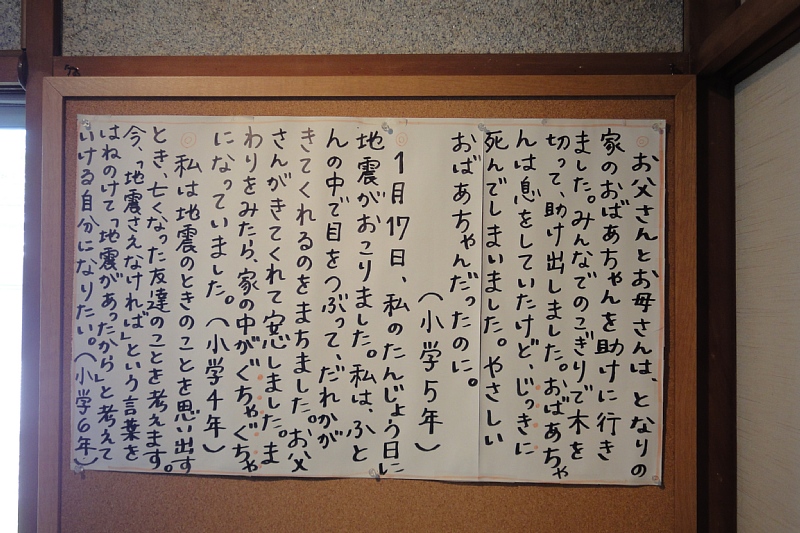 ◎お父さんとお母さんは、となりの
家のおばあちゃんを助けに行き
ました。みんなでのこぎりで木を
切って、助け出しました。おばあちゃ
んは息をしていたけど、じっきに
死んでしまいました。やさしい
おばあちゃんだったのに。
(小学5年)
◎1月17日、私のたんじょう日に
地震がおこりました。私は、ふと
んの中で目をつぶって、だれかが
きてくれるのをまちました。お父
さんがきてくれて安心しました。ま
わりをみたら、家の中がぐちゃぐちゃ
になっていました。(小学4年)
◎私は地震のときのことを思い出す
とき、亡くなった友達のことを考えます。
今、「地震さえなければ」という言葉を
はねのけて「地震があったから」と考えて
いける自分になりたい。(小学6年)